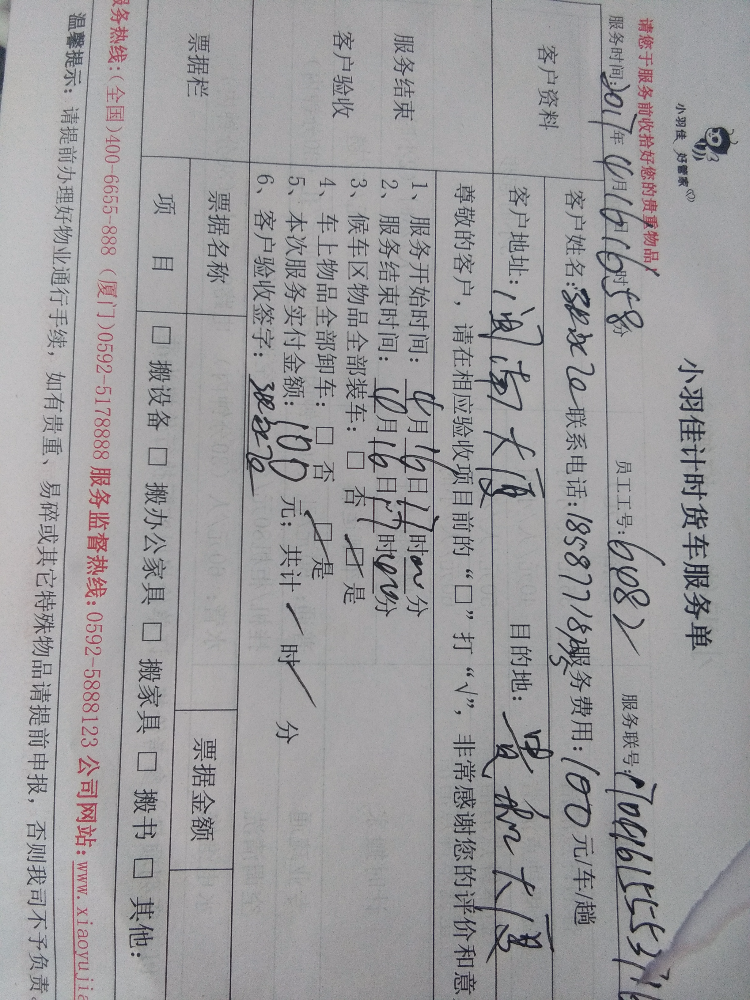 小羽佳 好管家
小羽佳计时货车服务单
请您于服务前收拾好您的贵重物品!
服务时间: 2017年 月16 时58分 员工工号: 6082 服务联号:
客户资料
客户姓名: 联系电话: 服务费用: 100元/车/趟
客户地址: 闽南大厦 目的地: 贵和大厦
服务结束
客户验收
尊敬的客户, 请在相应验收项目前的“□”打“√”, 非常感谢您的评价和意
1、服务开始时间: 月16日17时00分
2、服务结束时间: 月16日17时 分
3、候车区物品全部装车: □ 否 ☑ 是
4、车上物品全部卸车: □ 否 ☑ 是
5、本次服务实付金额: 100 元; 共计 时 分
6、客户验收签字:
票据栏
票据名称 票据金额
项 目 □ 搬设备 □ 搬办公家具 □ 搬家具 □ 搬书 □ 其他:
服务热线:(全国)400-6655-888 (厦门)0592-5178888 服务监督热线:0592-5888123 公司网站:www.xiaoyujia
温馨提示: 请提前办理好物业通行手续, 如有贵重、易碎或其它特殊物品请提前申报, 否则我司不予负责。